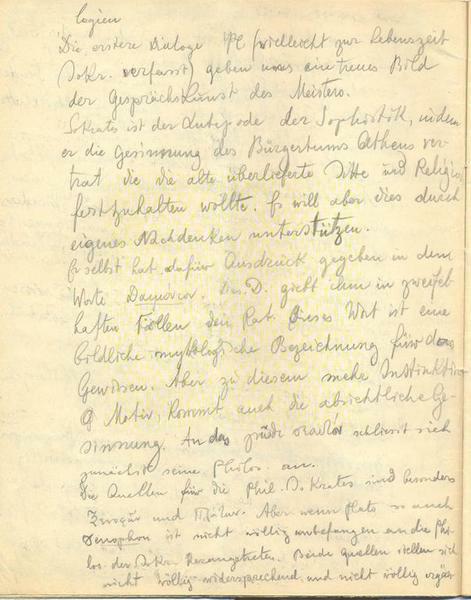 logien
Die erstere Dialoge Pl (vielleicht zur Lebenszeit
Sokr. verfasst) geben uns ein treues Bild
der Gesprächskunst des Meisters.
Sokrates ist der Antipode der Sophistik, indem
er die Gesinnung des Bürgertums Athens ver-
trat die die alte überlieferte Sitte und Religion
festzuhalten wollte. Er will aber dies durch
eigenes Nachdenken unterstützen.
Er selbst hat dafür Ausdruck gegeben in dem
Worte Das D. giebt ihm in zweifel-
haften Fällen den Rat. Dieses Wort ist eine
bildliche mythologische Bezeichnung für das
Gewissen. Aber zu diesem mehr Instinktiven
Motiv, kommt auch die absichtliche Ge-
sinnung. An das schliesst sich
zunächst seine Philos. an.
Die Quellen für die Phil. Sokrates sind besonders
und Aber wenn Plato so auch
Xenophon ist nicht völlig unbefangen an die Phi-
los. der Sokr. herangetreten. Beide quellen stellen sich
nicht völlig widersprechend und nicht völlig